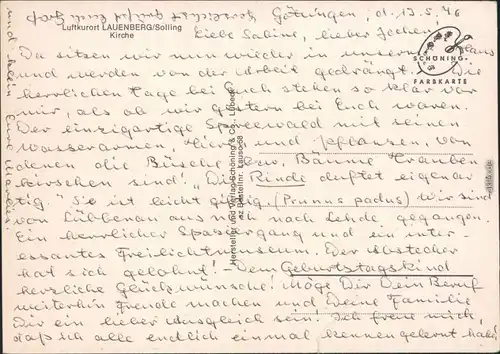 Göttingen, d. 13.5.76
Luftkurort LAUENBERG/Solling
Kirche
Liebe Sabine, lieber Jochen!
SCHÖNING
FARBKARTE
Da sitzen wir nun wieder in unserem Haus
und werden von der Arbeit gedrängt. Die
herrlichen Tage bei Euch stehen so klar vor
mir, als ob wir gestern bei Euch waren.
Der einzigartige Spreewald mit seinen
Wasserarmen, Tieren und Pflanzen, von
denen die Büsche bzw. Bäume Trauben
kirschen sind! "Die Rinde duftet eigenar
tig". Sie ist leicht giftig (Prunus padus) wir sind
von Lübbenau aus nach Lehde gegangen.
Ein herrlicher Spaziergang und ein inter
essantes Freilichtmuseum. Der Abstecher
hat sich gelohnt! Dem Geburtstagskind
herzliche Glückwünsche! Möge Dir Dein Beruf
weiterhin Freude machen und Deine Familie
Dir ein lieber Ausgleich sein! Ich freue mich,
daß ich alle endlich einmal kennengelernt habe
Hersteller und Verlag Schöning & Co., Lübeck